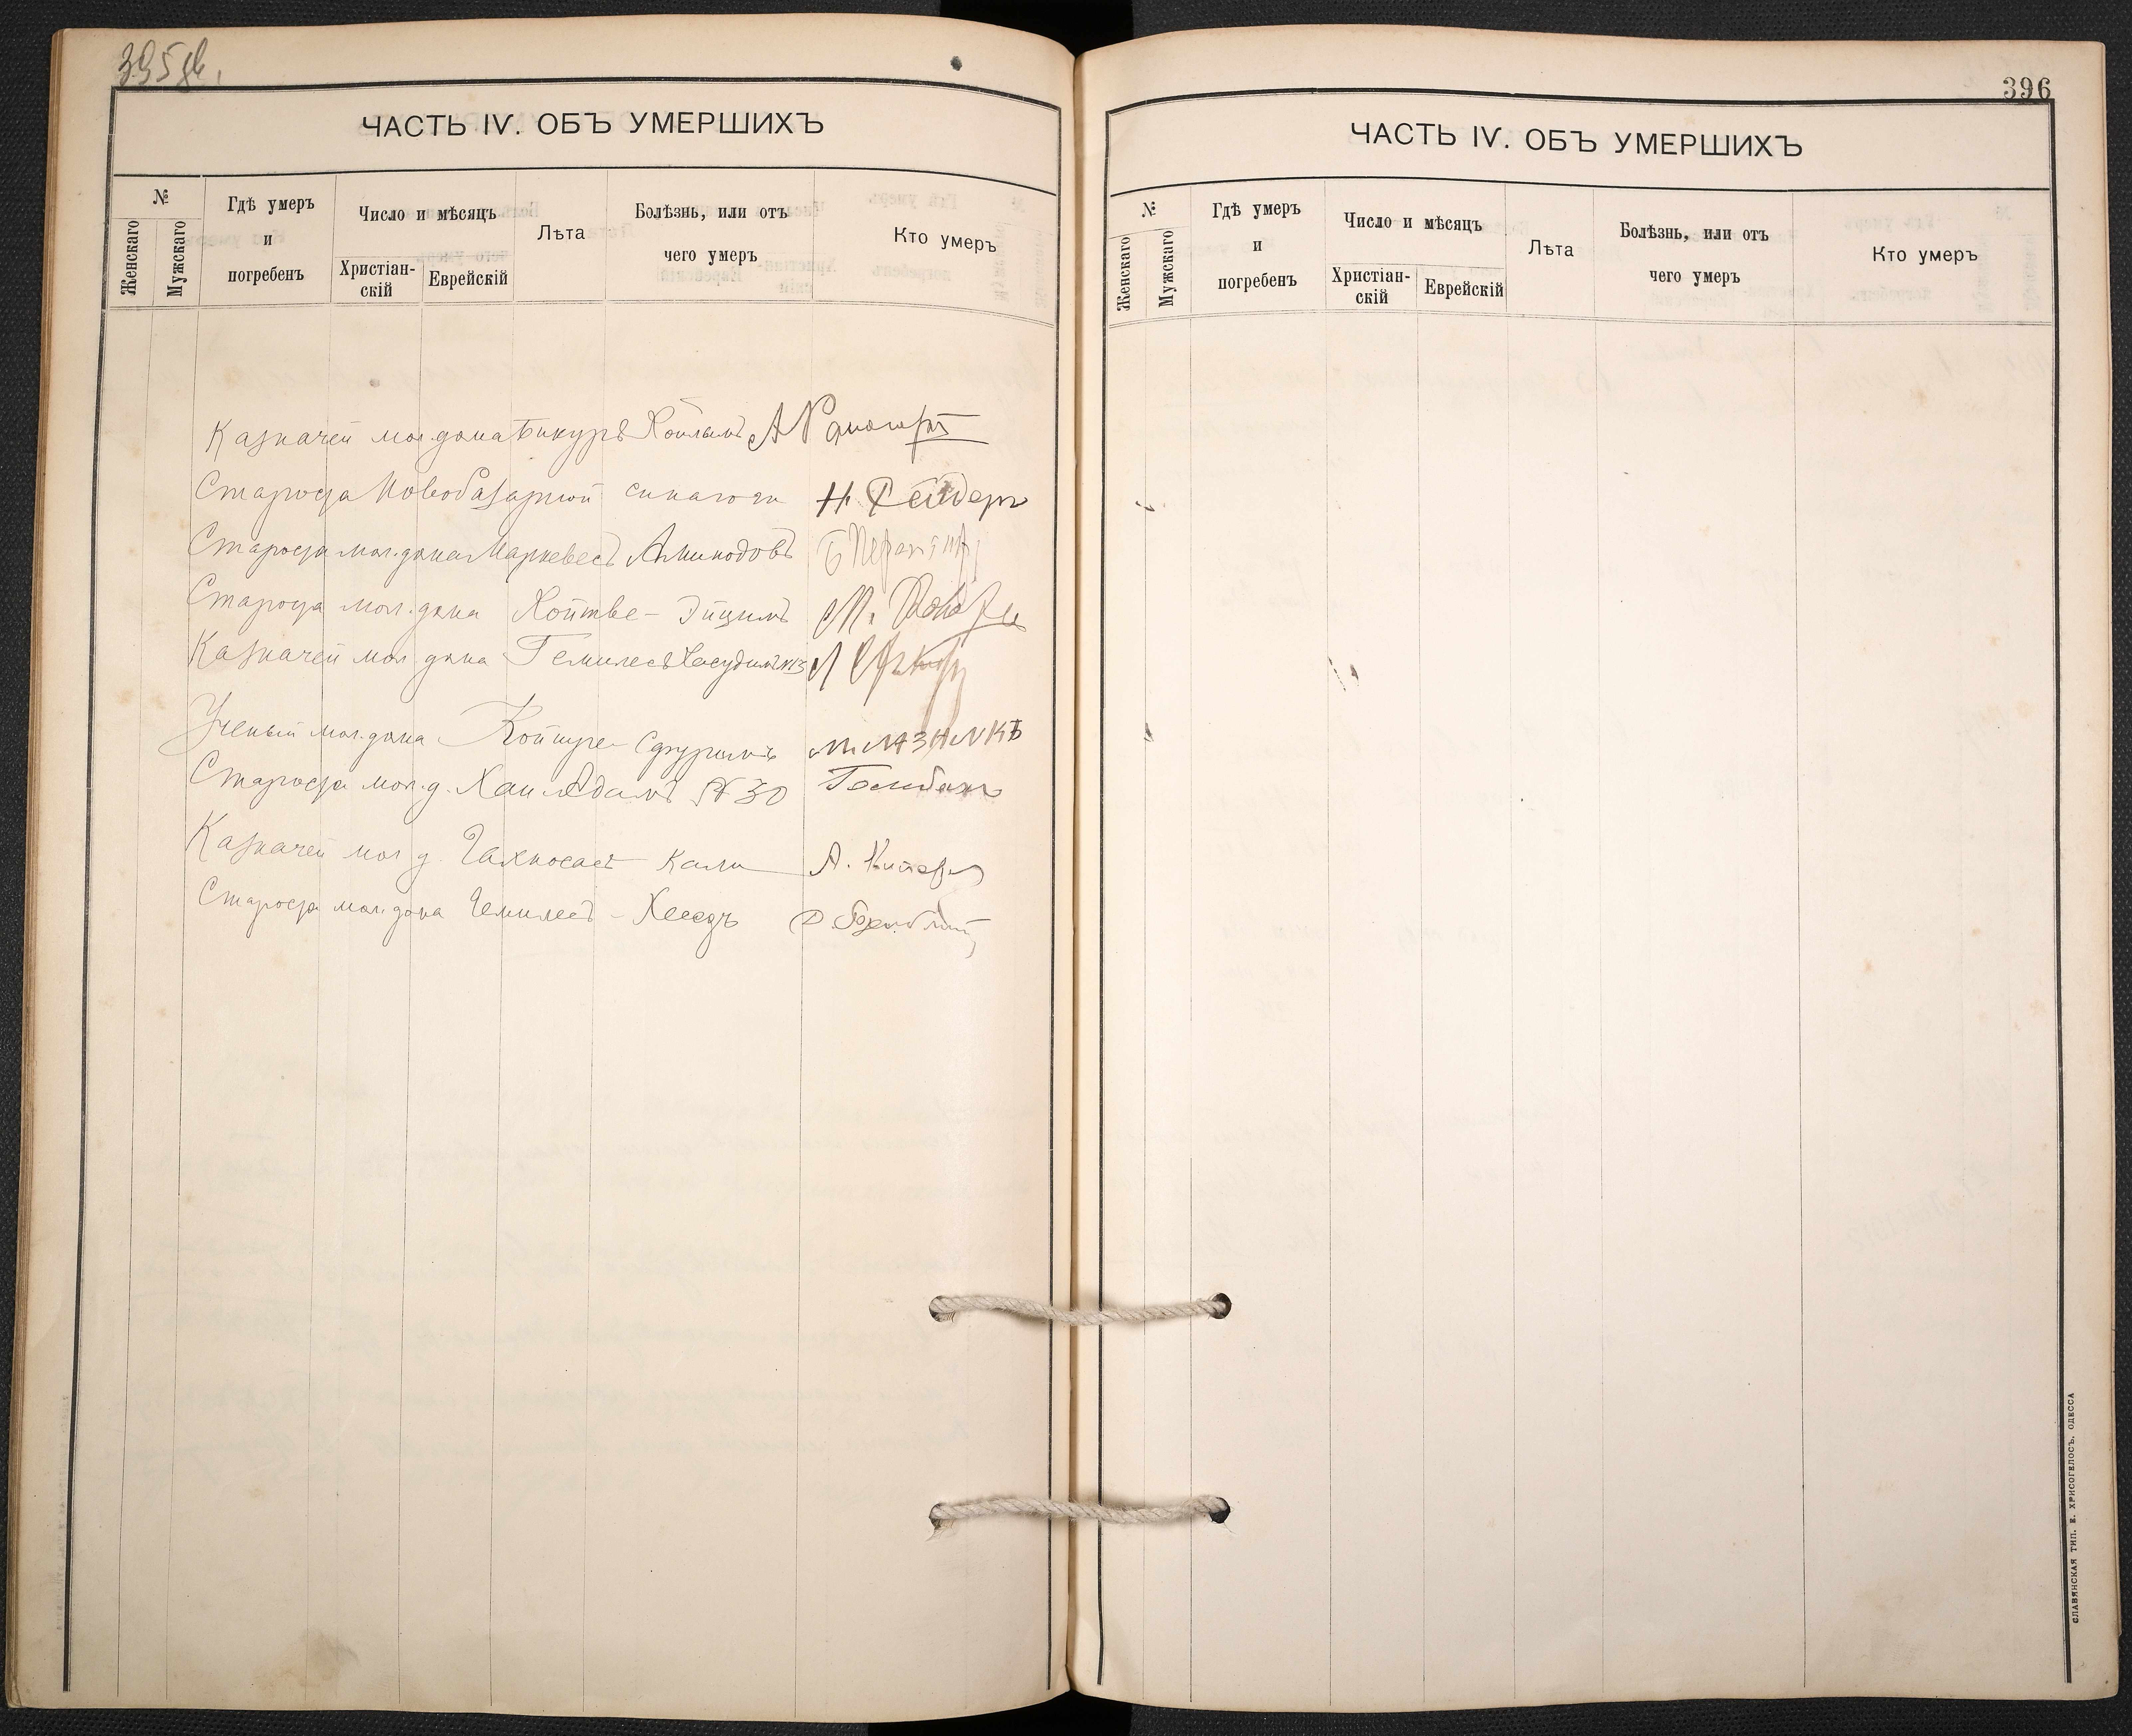 395 об.
ЧАСТЬ IV. ОБЪ УМЕРШИХЪ
№
Женскаго
Мужскаго
Гдѣ умеръ
и
погребенъ
Число и мѣсяцъ
Христіан-
скій
Еврейскій
Лѣта
Болѣзнь, или отъ
чего умеръ
Кто умеръ
Казначей мол. дома Бикуръ Хойлимъ А
Староста Новобазарной синагоги Н. Рейдеръ
Староста мол. дома Аминодовъ
Староста мол. дома М.
Казначей мол. дома Гемилесъ Хасудимъ №3
Ученый мол. дома М. МАЗНИКЪ
Староста мол. д. Хаи Адамъ № 30
Казначей мол. д. Гахносасъ Кали А.
Староста мол. дома Гемилесъ - Хеседъ
396
ЧАСТЬ IV. ОБЪ УМЕРШИХЪ
№
Женскаго
Мужскаго
Гдѣ умеръ
и
погребенъ
Число и мѣсяцъ
Христіан-
скій
Еврейскій
Лѣта
Болѣзнь, или отъ
чего умеръ
Кто умеръ
СЛАВЯНСКАЯ ТИП. Е. ХРИСОГЕЛОСЪ. ОДЕССА